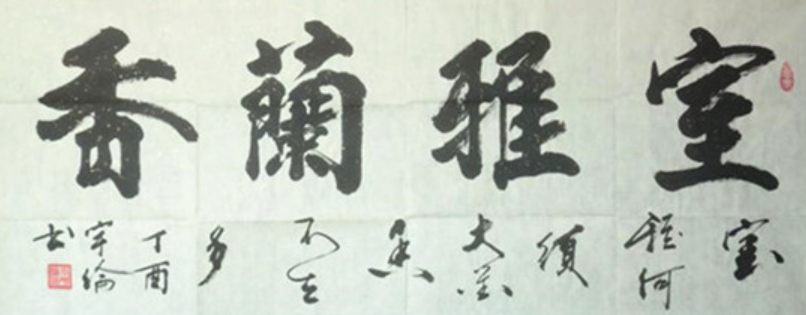 室雅蘭香
室雅何須大花香不在多
丁酉宇綸书